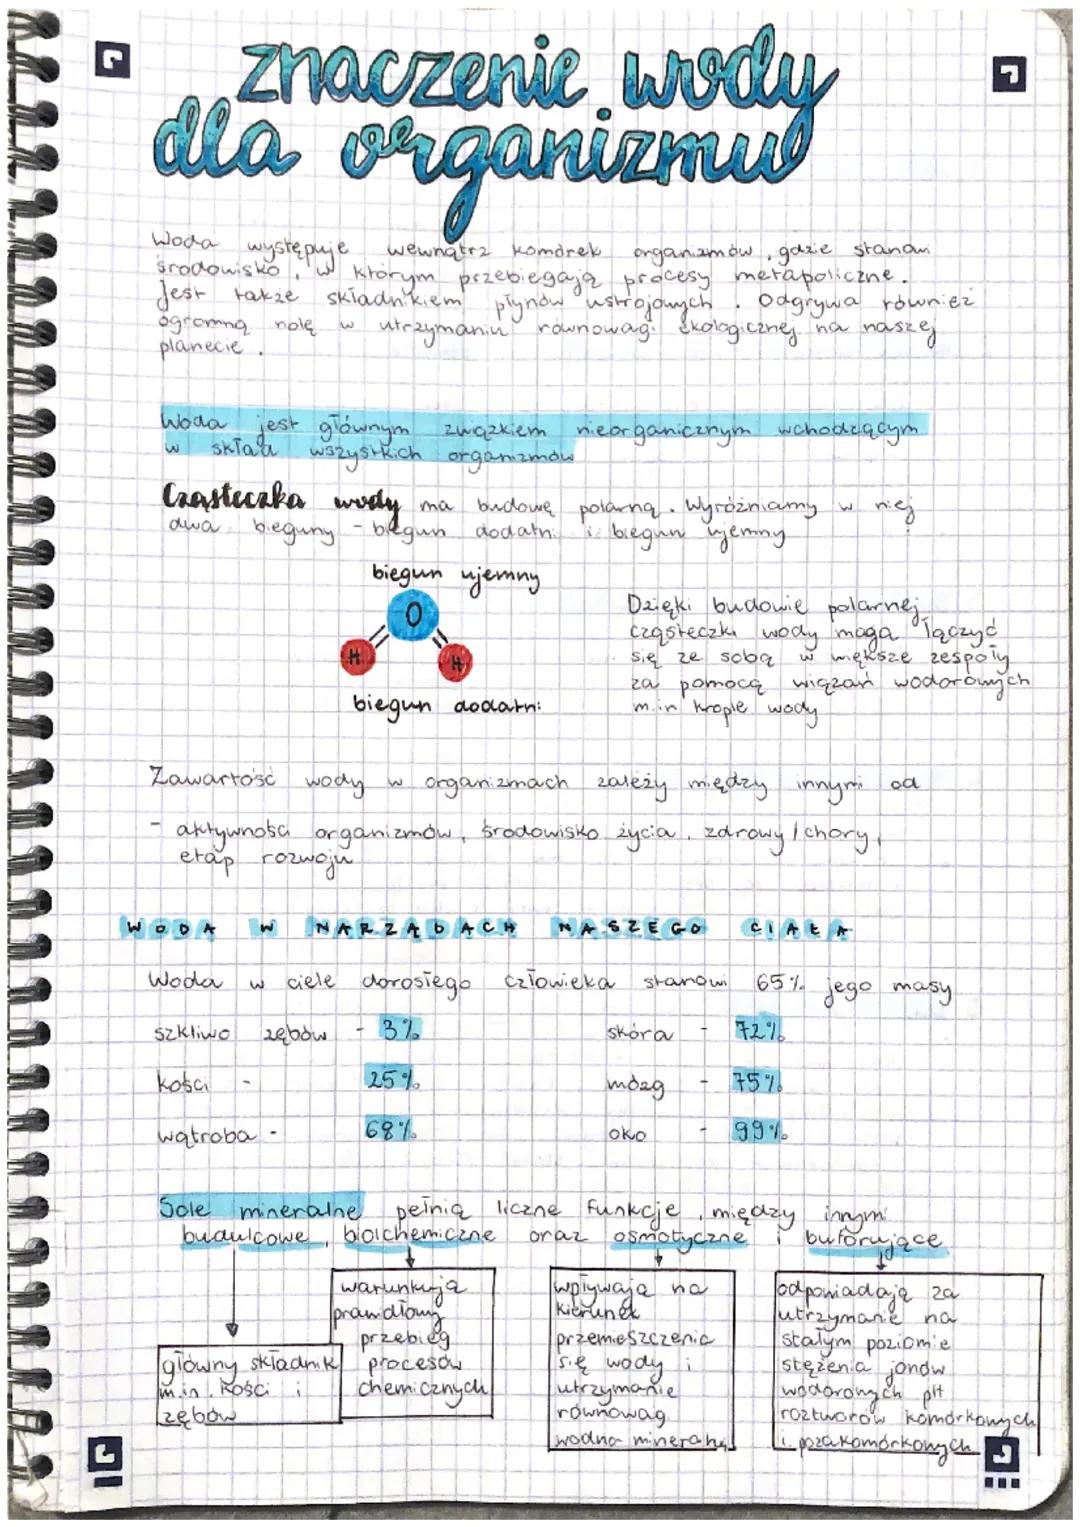 znaczenie wody
dla organizmu
Woda występuje wewnątrz komórek organizmów, gdzie stanowi
środowisko, w którym przebiegają procesy metapoliczne.
Jest także składnikiem płynów ustrojowych. Odgrywa również
ogromną rolę w utrzymaniu równowagi ekologicznej na naszej
planecie.
Woda jest głównym związkiem nieorganicznym wchodzącym
w skład wszystkich organizmów
Cząsteczka wody ma budowę polarną. Wyróżniamy w niej
dwa bieguny - biegun dodatni i biegun ujemny
biegun ujemny
O
H H
biegun dodatni
Dzięki budowie polarnej
cząsteczki wody mogą łączyć
się ze sobą w większe zespoły
za pomocą wiązań wodorowych
m.in krople wody
Zawartość wody w organizmach zależy między innymi od
- aktywności organizmów, środowisko życia, zdrowy/chory,
etap rozwoju
WODA W NARZĄDACH NASZEGO CIAŁA
Woda w ciele dorosłego człowieka stanowi 65% jego masy
szkliwo zębów - 3% skóra - 72%
kości - 25% mózg - 75%
wątroba - 68% oko - 99%
Sole mineralne pełnią liczne funkcje, między innymi
budulcowe, biolchemiczne oraz osmotyczne i buforujące
główny składnik
m.in. kości i
zębów
warunkują
prawidłowy
przebieg
procesów
chemicznych
wpływają na
kierunek
przemieszczenia
się wody i
utrzymanie
równowagi
wodno mineralnej
odpowiadają za
utrzymanie na
stałym poziomie
stężenia jonów
wodorowych pH
roztworów komórkowych
i pozakomórkowych